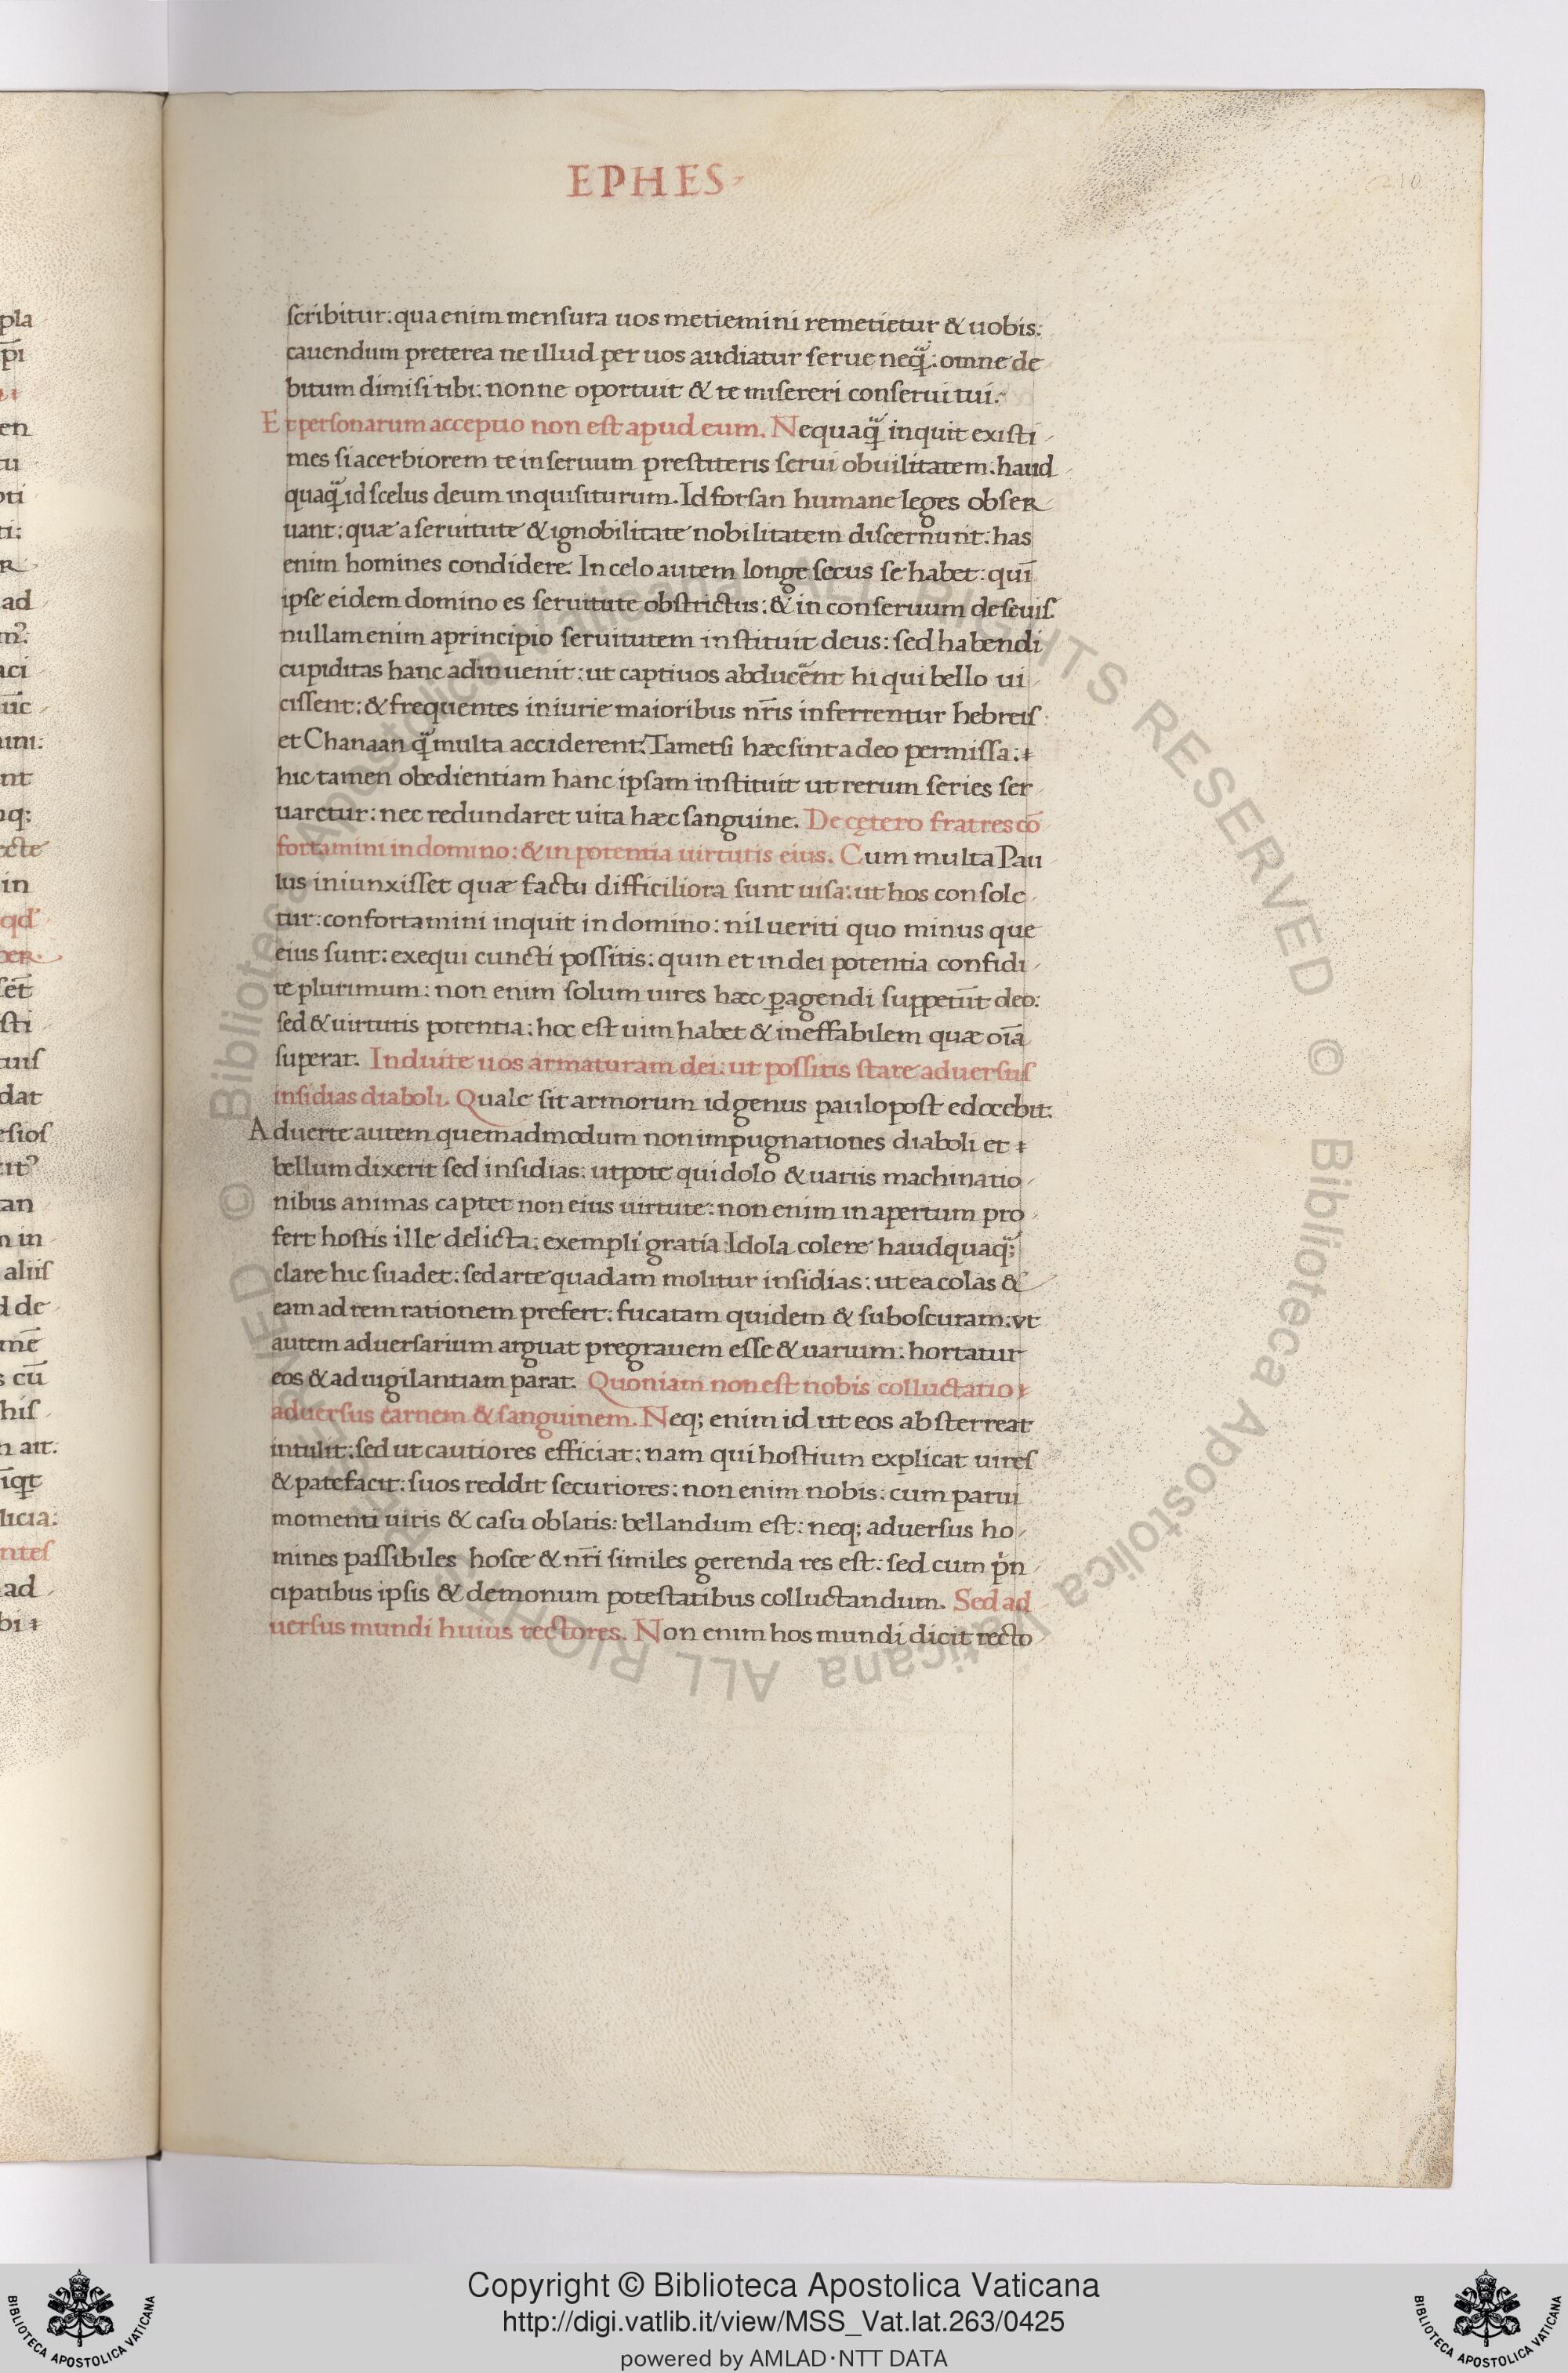 EPHES
210
scribitur: qua enim mensura uos metiemini remetietur & uobis:
cauendum preterea ne illud per uos audiatur serue neq̃: omne de
bitum dimisi tibi: nonne oportuit & te misereri conserui tui:
Et personarum acceptio non est apud eum. Nequaq̃ inquit existi
mes si acerbiorem te in seruum prestiteris serui ob uilitatem. haud
quaq̃ id scelus deum inquisiturum. Id forsan humane leges obser
uant: quæ a seruitute & ignobilitate nobilitatem discernunt: has
enim homines condidere. In celo autem longe secus se habet: qui̅
ipse eidem domino es seruitute obstrictus: & in conseruum deseuis.
nullam enim a principio seruitutem instituit deus: sed habendi
cupiditas hanc adinuenit: ut captiuos abduce̅nt hi qui bello ui
cissent: & frequentes iniurie maioribus nr̅is inferrentur hebreis
et Chanaan q̃ multa acciderent. Tametsi hæc sint a deo permissa:
hic tamen obedientiam hanc ipsam instituit ut rerum series ser
uaretur: nec redundaret uita hæc sanguine. De cętero fratres co̅
fortamini in domino: & in potentia uirtutis eius. Cum multa Pau
lus iniunxisset quæ factu difficiliora sunt uisa: ut hos console
tur: confortamini inquit in domino: nil ueriti quo minus que
eius sunt: exequi cuncti possitis: quin et in dei potentia confidi
te plurimum: non enim solum uires hæc ꝑagendi suppetu̅t deo:
sed & uirtutis potentia: hoc est uim habet & ineffabilem quæ oi̅a
superat. Induite uos armaturam dei: ut possitis stare aduersus
insidias diaboli. Quale sit armorum id genus paulo post edocebit.
Aduerte autem quemadmodum non impugnationes diaboli et
bellum dixerit sed insidias: utpote qui dolo & uariis machinatio
nibus animas captet non eius uirtute: non enim in apertum pro
fert hostis ille delicta: exempli gratia: Idola colere haudquaq̃;
clare hic suadet: sed arte quadam molitur insidias: ut ea colas &
eam ad rem rationem prefert: fucatam quidem & suboscuram: vt
autem aduersarium arguat pregrauem esse & uarium: hortatur
eos & ad uigilantiam parat. Quoniam non est nobis colluctatio
aduersus carnem & sanguinem. Neq; enim id ut eos absterreat
intulit: sed ut cautiores efficiat: nam qui hostium explicat uires
& patefacit: suos reddit securiores: non enim nobis: cum parui
momenti uiris & casu oblatis: bellandum est: neq; aduersus ho
mines passibiles hosce & nr̅i similes gerenda res est: sed cum pi̇n
cipatibus ipsis & demonum potestatibus colluctandum. Sed ad
uersus mundi huius rectores. Non enim hos mundi dicit recto
Copyright © Biblioteca Apostolica Vaticana
http://digi.vatlib.it/view/MSS_Vat.lat.263/0425
powered by AMLAD·NTT DATA